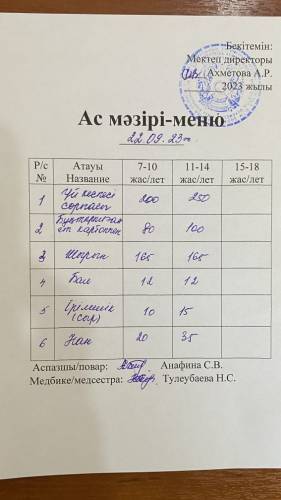 Бекітемін:
Мектеп директоры
Ахметова А.Р.
2023 жылы
Ас мәзірі-меню
22.09.23ж
Р/с № Атауы Название 7-10 жас/лет 11-14 жас/лет 15-18 жас/лет
1 Үй кеспесі сорпасы 200 250
2 Бұқтырылған ет картоппен 80 100
3 Шырын 165 165
4 Бал 12 12
5 Ірімшік (сыр) 10 15
6 Нан 20 35
Аспазшы/повар: Анафина С.В.
Медбике/медсестра: Тулеубаева Н.С.